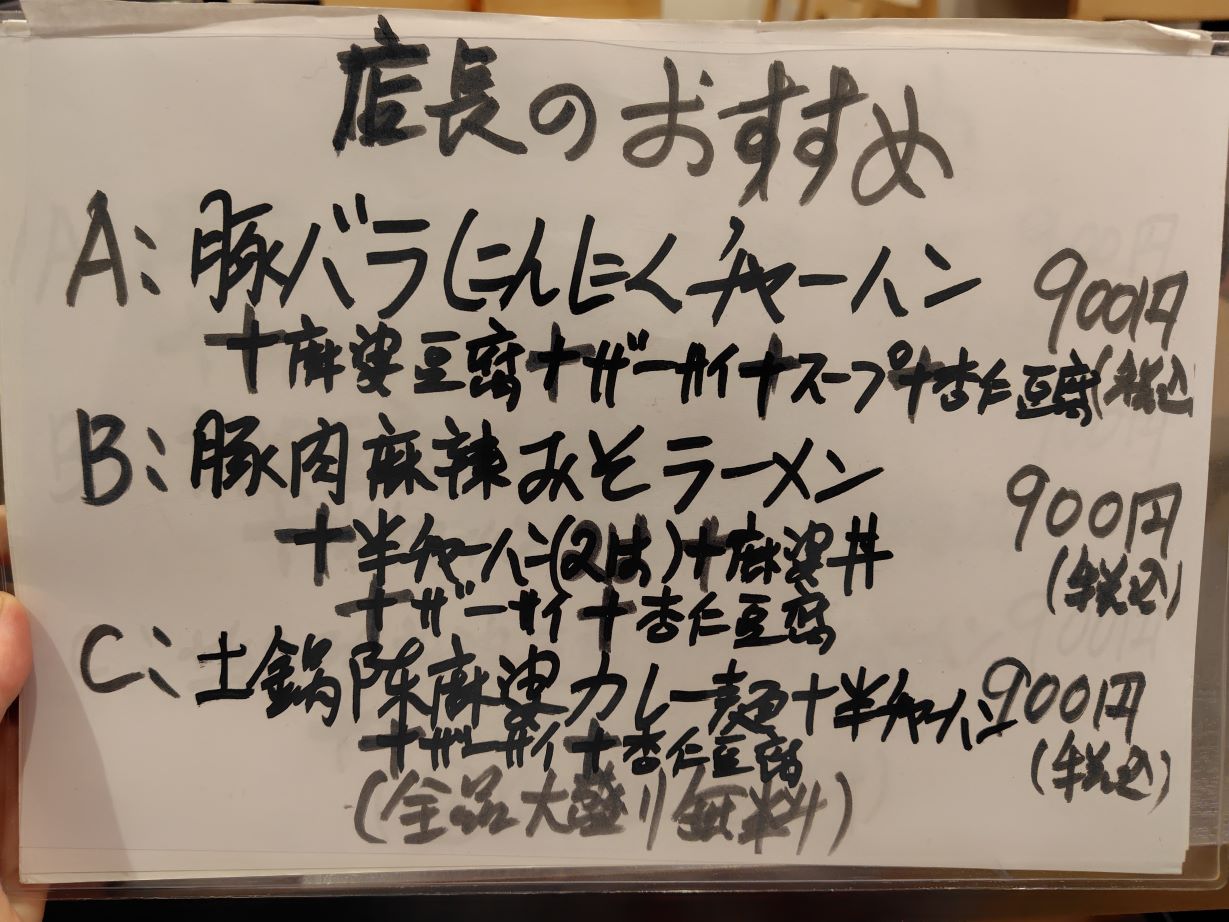 店長のおすすめ
A: 豚バラにんにくチャーハン 900円
+麻婆豆腐+ザーサイ+スープ+杏仁豆腐(税込
B: 豚肉麻辣みそラーメン 900円
+半チャーハン()+麻婆丼 (税込)
+ザーサイ+杏仁豆腐
C: 土鍋陳麻婆カレー麺+半チャーハン 900円
+ザーサイ+杏仁豆腐 (税込)
(全品大盛り無料)